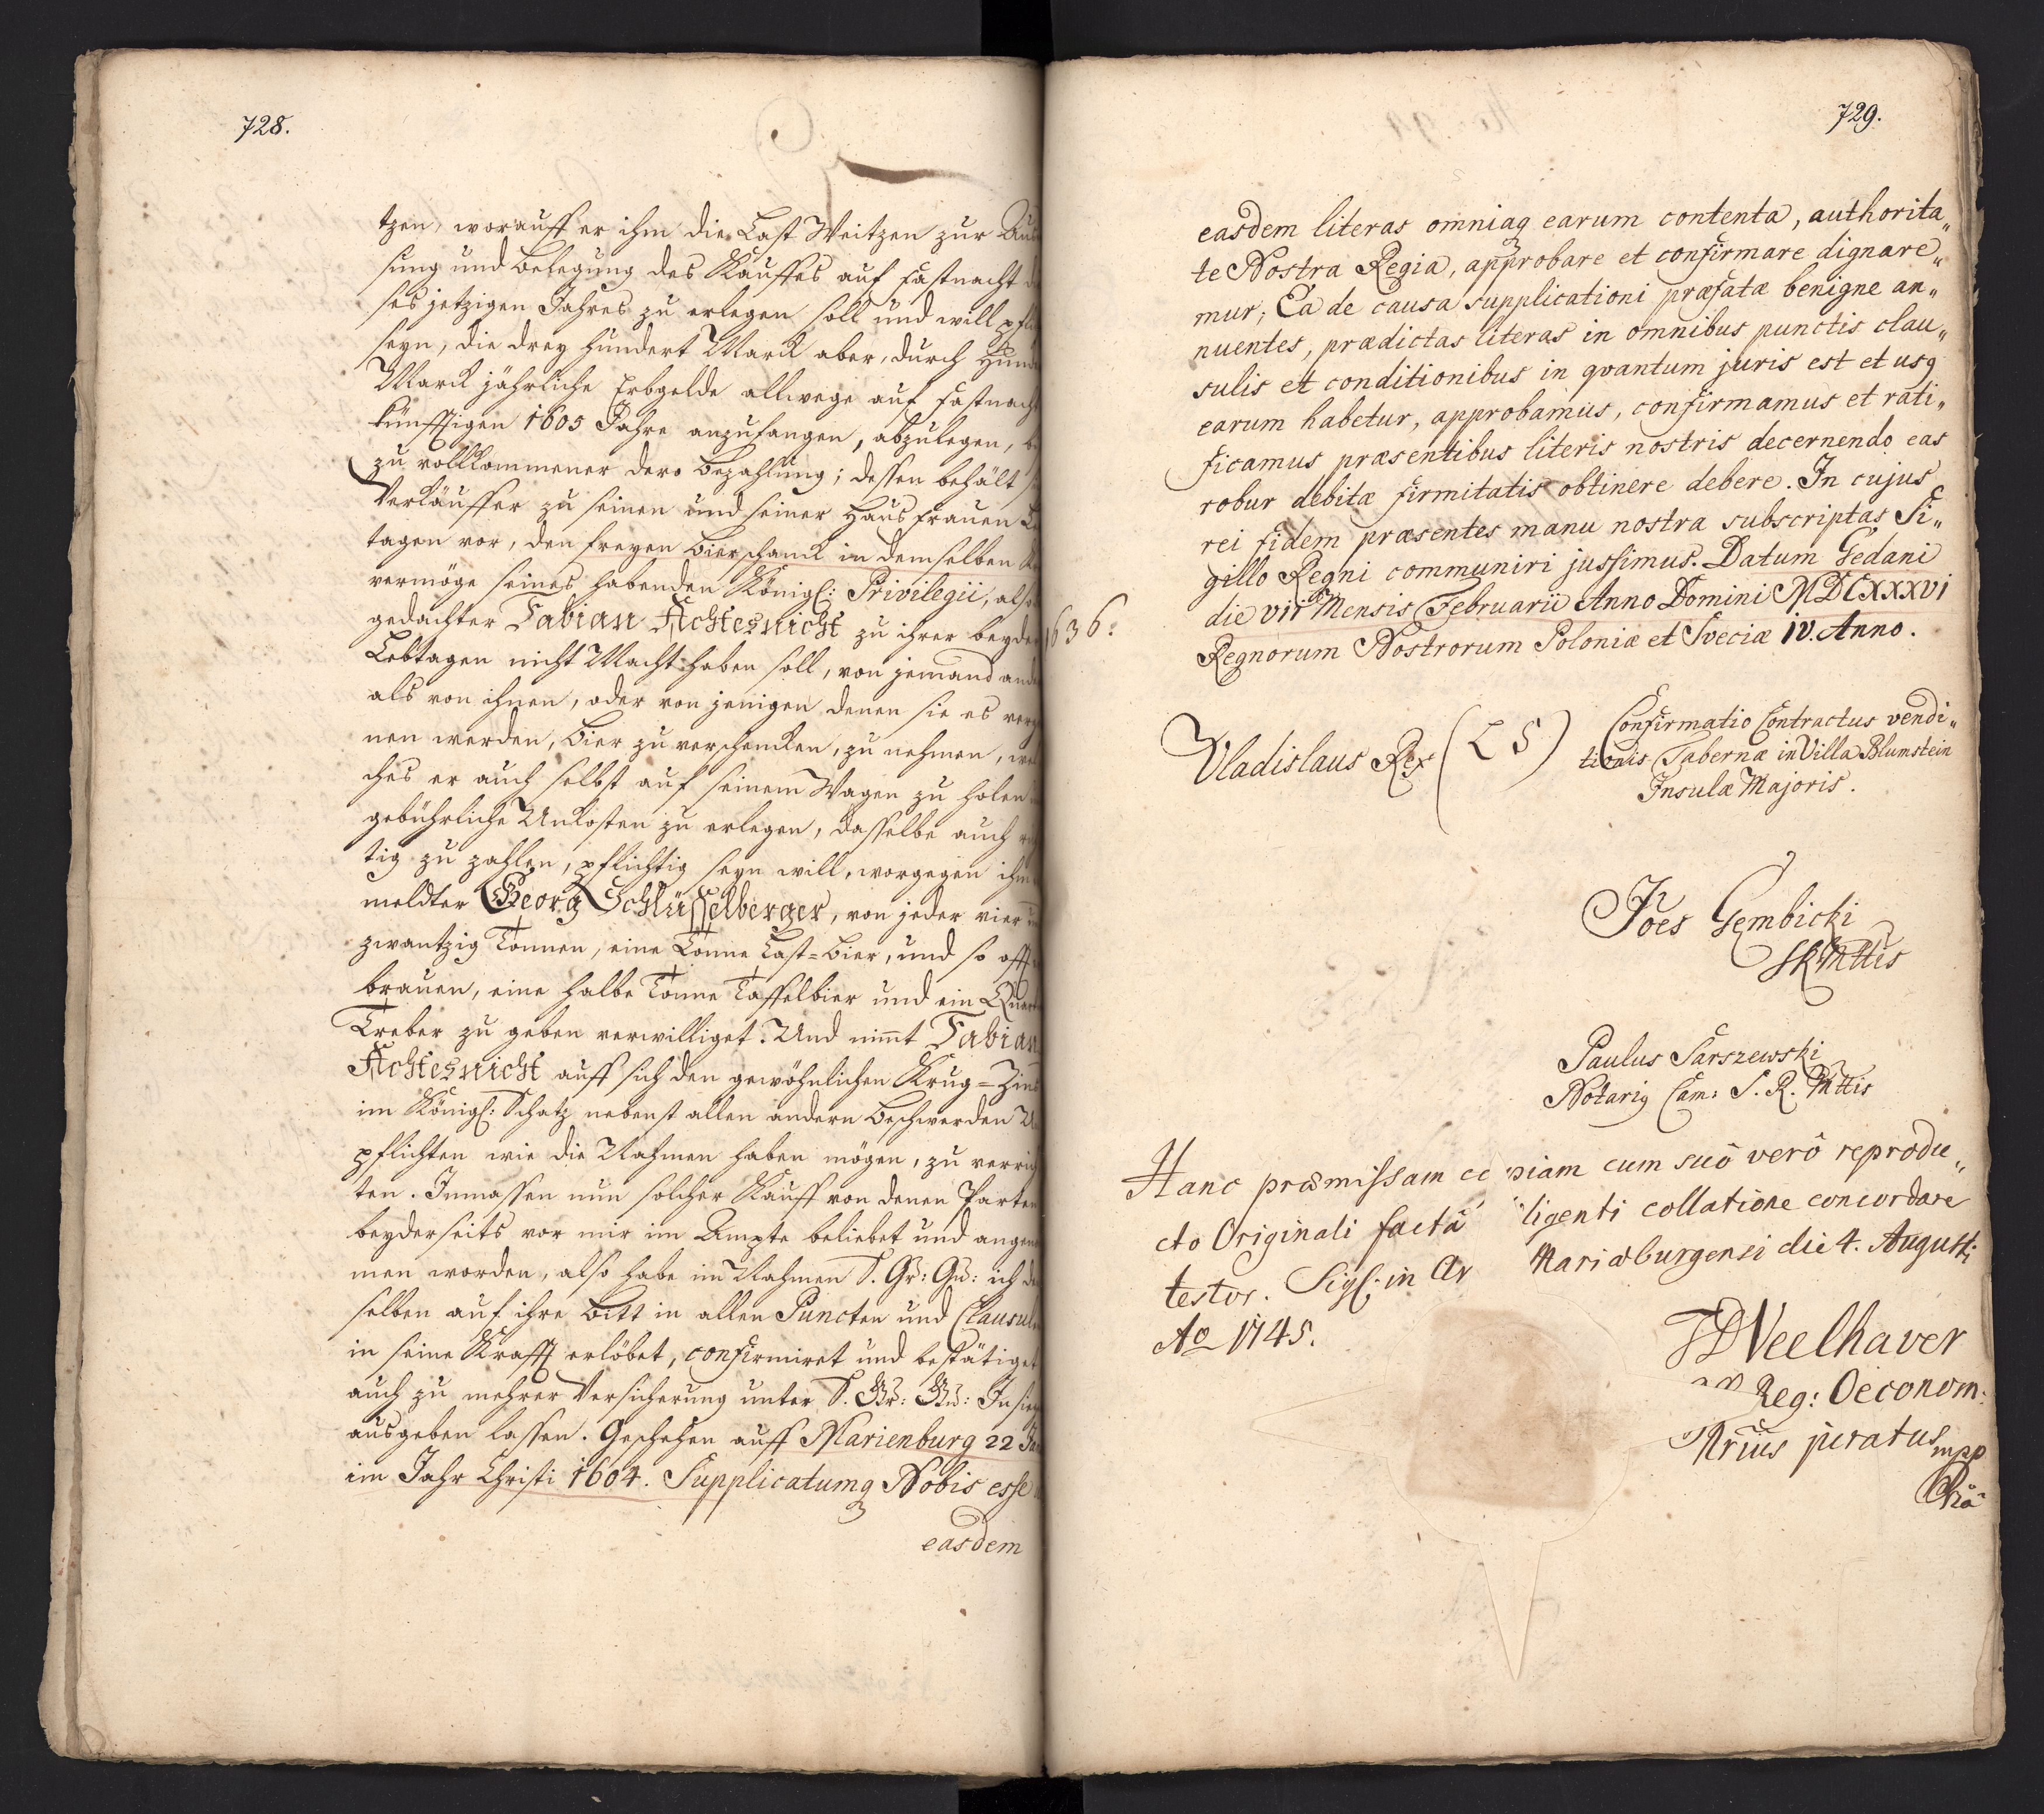 728.
tzen, worauff er ihm die Last Weitzen zur
sung und Belegung des Kauffes auf Fastnacht
ses jetzigen Jahres zu erlegen soll und will
seyn, die drey hundert Marck aber, durch
Marck jährliche Erbgelde allwege auf
künfftigen 1605 Jahre anzufangen, abzulegen,
zu vollkommener dero Bezahlung; dessen behält
Verkäuffer zu seinen und seiner Hausfrauen
tagen vor, den freyen Bierschanck in demselben
vermöge seines habenden Königl: Privilegii,
gedachter Fabian Achtesnicht zu ihrer
Lebtagen nicht Macht haben soll, von jemand
als von ihnen, oder von jenigen denen sie es
nen werden, Bier zu verschencken, zu nehmen,
ches er auch selbst auf seinem Wagen zu holen
gebührliche Unkosten zu erlegen, dasselbe auch
tig zu zahlen, pflichtig seyn will, worgegen
meldter Georg Schlüsselberger, von jeder vier
zwantzig Tonnen, eine Tonne Last-Bier, und so offt
brauen, eine halbe Tonne Taffelbier und ein
Treber zu geben verwilliget. Und nimt Fabian
Achtesnicht auff sich den gewöhnlichen Krug-
im Königl: Schatz nebenst allen andern Beschwerden
pflichten wie die Nahmen haben mögen, zu
ten. Inmassen nun solcher Kauff von denen
beyderseits vor mir im Ampte beliebet und
men worden, also habe im Nahmen S. Gr: Gn: ich
selben auf ihre Bitt in allen Puncten und
in seine Krafft erlöbet, confirmiret und bestätiget
auch zu mehrer Versicherung unter S. Gr: Gn:
ausgeben lassen. Geschehen auff Marienburg 22
im Jahr Christi 1604. Supplicatumq Nobis esse
easdem
729.
easdem literas omniaq earum contenta, authorita„
te Nostra Regia, approbare et confirmare dignare„
mur; Ea de causa supplicationi præfatæ benigne an„
nuentes, prædictas literas in omnibus punctis clau„
sulis et conditionibus in qvantum juris est et usq
earum habetur, approbamus, confirmamus et rati„
ficamus præsentibus literis nostris decernendo eas
robur debitæ firmitatis obtinere debere. In cujus
rei fidem præsentes manu nostra subscriptas Si„
gillo Regni communiri jussimus. Datum Gedani
die VII Mensis Februarii Anno Domini MDCXXXVI
1636:
Regnorum Nostrorum Poloniæ et Sveciæ IV. Anno.
Vladislaus Rex (L S)
Confirmatio Contractus vendi„
tionis Tabernæ in Villa Blumstein
Insulæ Majoris.
Joes Gembicki
SRMttis
Paulus Sarszewski
Notariq Cam: S. R. Mttis
Hanc præmissam copiam cum suô verô reprodu„
cto Originali factâ ligenti collatione concordare
testor. Sigl: in Ar Mariæburgensi die 4. Augusti
Ao 1745.
Veelhaver
Reg: Oeconom:
Nrius juratus mpp